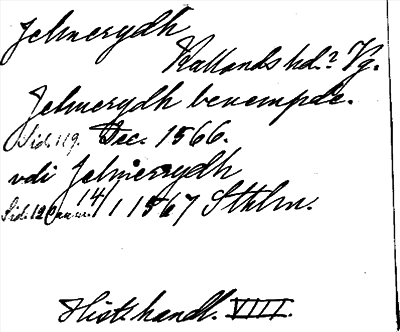 Jelmerydh
Kållands hd.? Vg.
Jelmerydh benempde.
Sid. 119. Dec. 1566.
vdi Jelmerrydh
Sid: 12 14/1 1567 Sthlm.
Hist. handl. VIII.